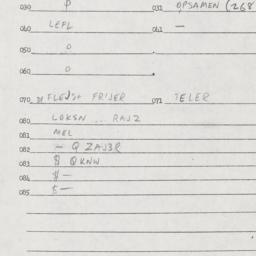 030 P 031 OPSAMEN (268
060 LEPL 061 —
050 0
060 0
070 FLEJS+ FRIJER 071 TELER
080 LOKSN .. RAJZ
081 MEL
082 — Q ZAJ3R
083 $ QKNW
084 $ —
085 $ —